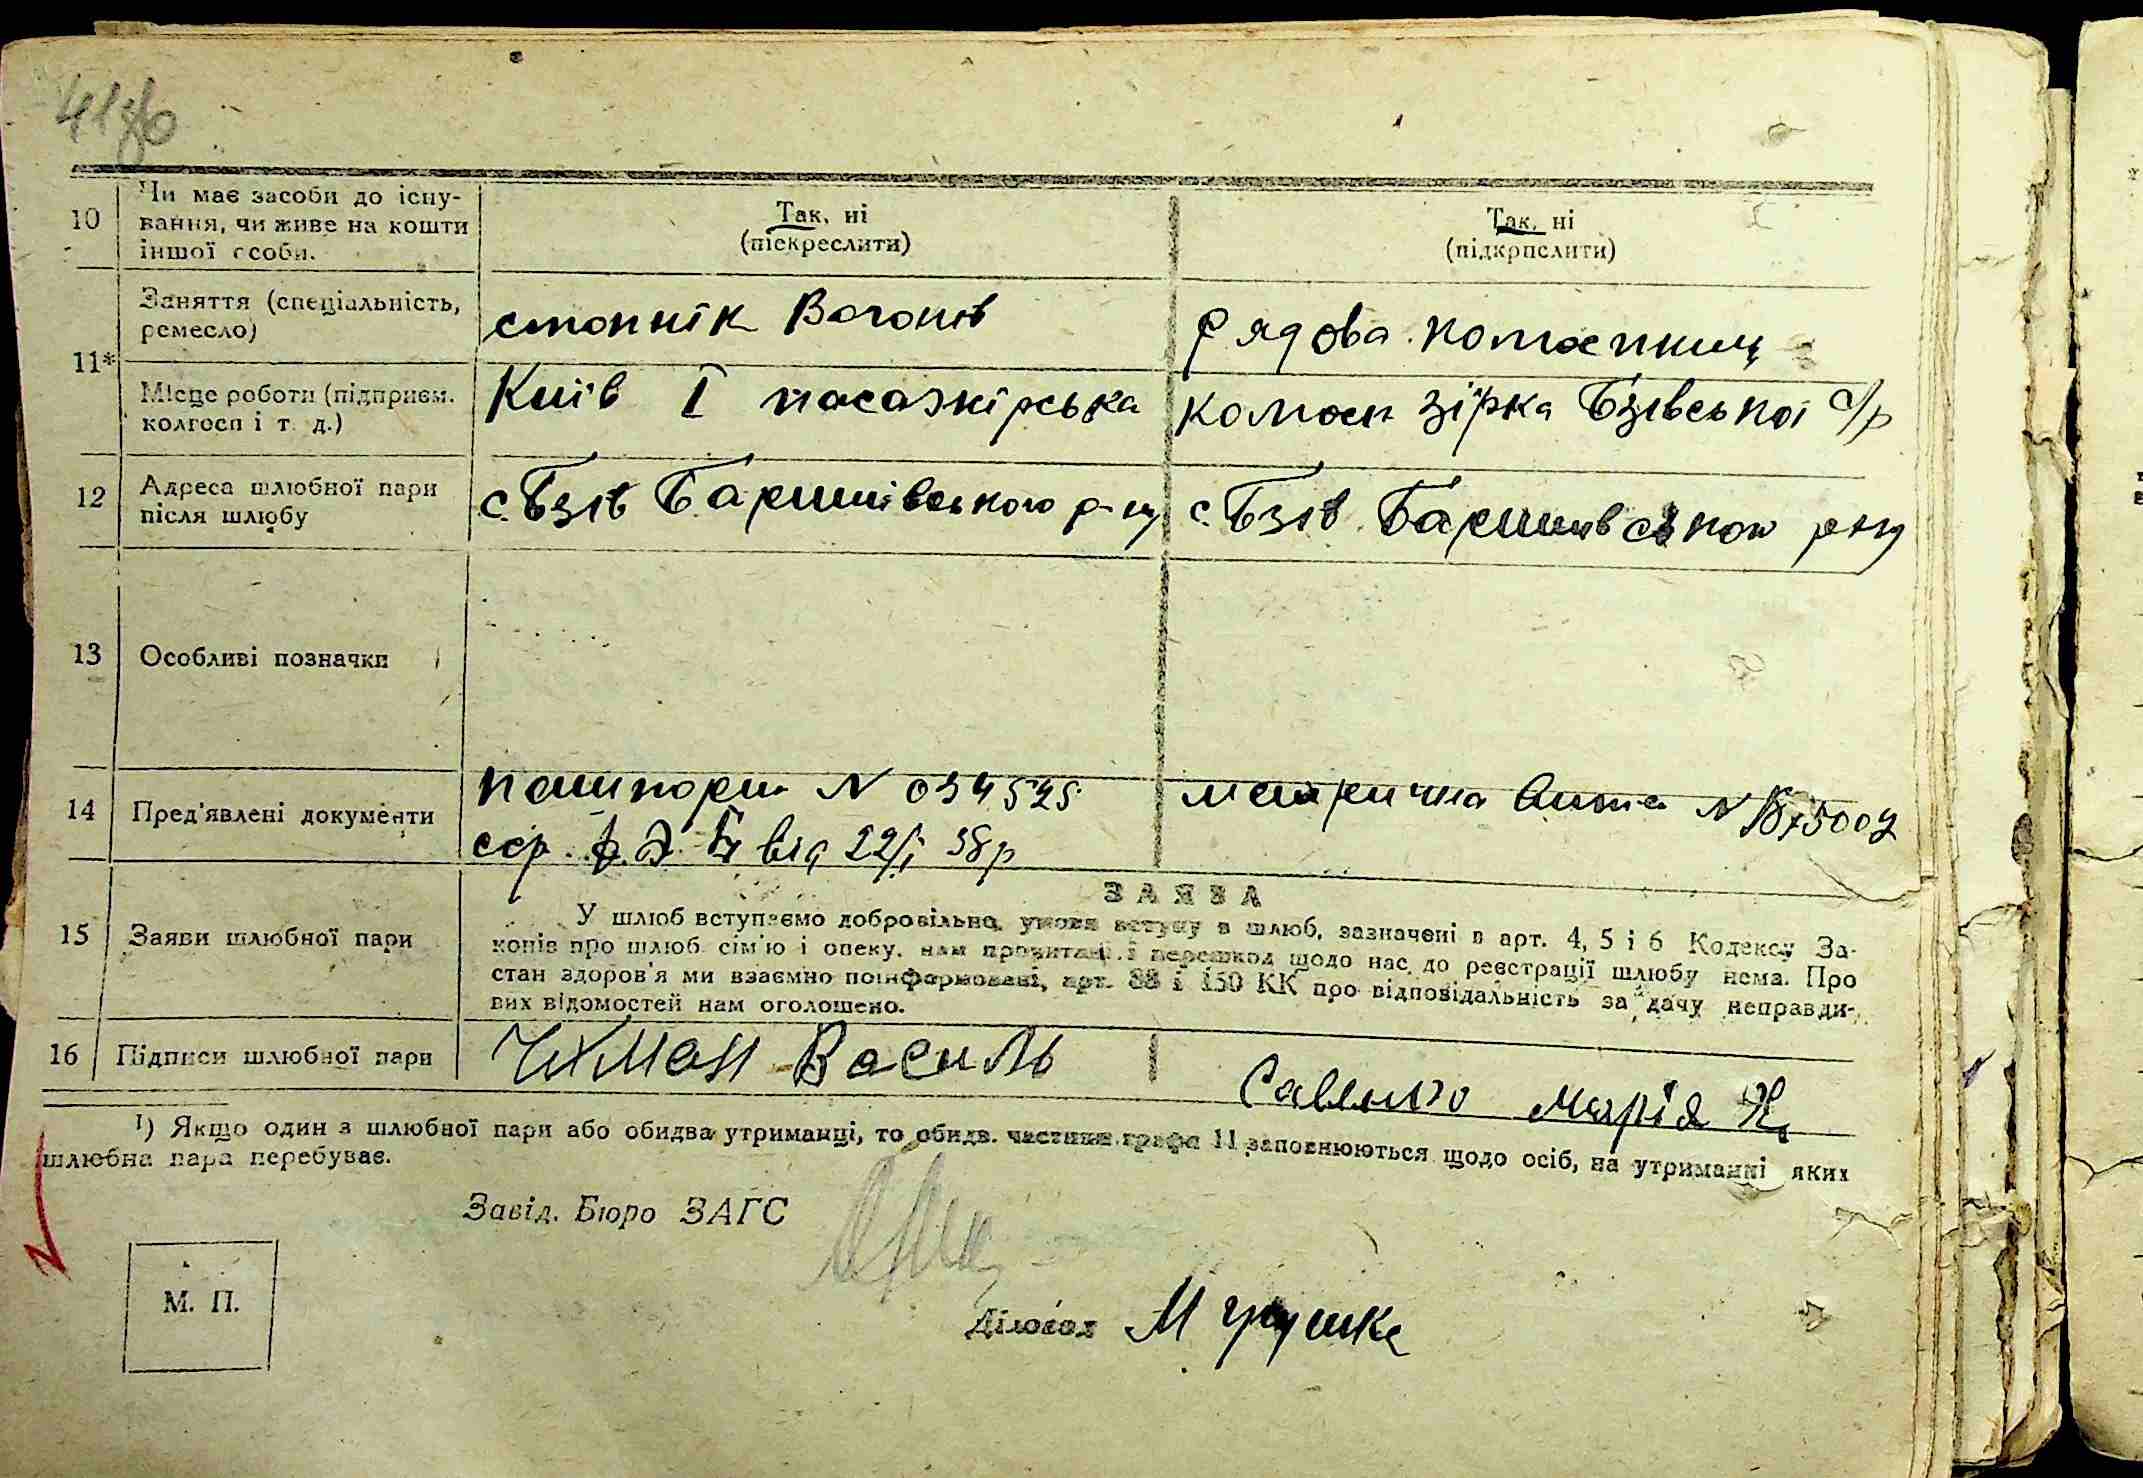 10
Чи має засоби до існу-
вання, чи живе на кошти
іншої особи.
Так, ні
(піскреслити)
Так, ні
(підкрпслити)
11*
Заняття (спеціальність,
ремесло)
Вагонів
рядова
Місце роботи (підприєм.
колгосп і т. д.)
Київ I пасажірська
зірка Бзівської с/р
12
Адреса шлюбної пари
після шлюбу
с. Бзів Баришівського р-ну
с. Бзів Баришівського р-ну
13
Особливі позначки
14
Пред'явлені документи
пашпорт N 034525
від 22/I 38р
метрична N
15
Заяви шлюбної пари
ЗАЯВА
У шлюб вступаємо добровільно, умови вступу в шлюб, зазначені в арт. 4, 5 і 6 Кодексу За-
конів про шлюб сім'ю і опеку, нам прочитані і перешкод щодо нас до реєстрації шлюбу нема. Про
стан здоров'я ми взаємно поінформовані, арт. 88 і 150 КК про відповідальність за дачу неправди-
вих відомостей нам оголошено.
16
Підписи шлюбної пари
Чухман Василь
Марія
1) Якщо один з шлюбної пари або обидва утриманці, то обидв. частини графа 11 заповнюються щодо осіб, на утриманні яких
шлюбна пара перебуває.
Завід. Бюро ЗАГС
М. П.
Діловод